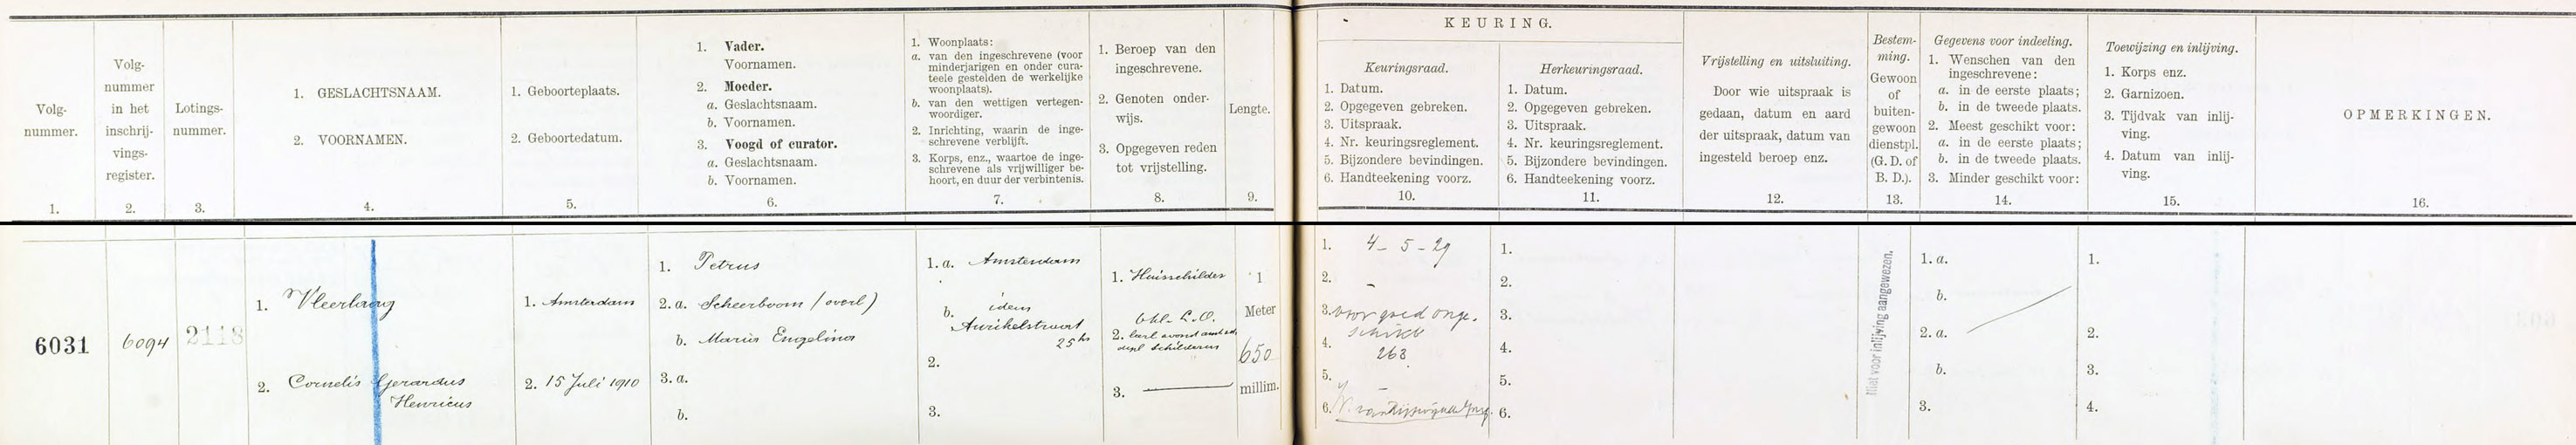 Volg-
nummer.
1.
Volg-
nummer
in het
inschrij-
vings-
register.
2.
Lotings-
nummer.
3.
1. GESLACHTSNAAM.
2. VOORNAMEN.
4.
1. Geboorteplaats.
2. Geboortedatum.
5.
1. Vader.
Voornamen.
2. Moeder.
a. Geslachtsnaam.
b. Voornamen.
3. Voogd of curator.
a. Geslachtsnaam.
b. Voornamen.
6.
1. Woonplaats:
a. van den ingeschrevene (voor
minderjarigen en onder cura-
teele gestelden de werkelijke
woonplaats).
b. van den wettigen vertegen-
woordiger.
2. Inrichting, waarin de inge-
schrevene verblijft.
3. Korps, enz., waartoe de inge-
schrevene als vrijwilliger be-
hoort, en duur der verbintenis.
7.
1. Beroep van den
ingeschrevene.
2. Genoten onder-
wijs.
3. Opgegeven reden
tot vrijstelling.
8.
Lengte.
9.
KEURING.
Keuringsraad.
1. Datum.
2. Opgegeven gebreken.
3. Uitspraak.
4. Nr. keuringsreglement.
5. Bijzondere bevindingen.
6. Handteekening voorz.
10.
Herkeuringsraad.
1. Datum.
2. Opgegeven gebreken.
3. Uitspraak.
4. Nr. keuringsreglement.
5. Bijzondere bevindingen.
6. Handteekening voorz.
11.
Vrijstelling en uitsluiting.
Door wie uitspraak is
gedaan, datum en aard
der uitspraak, datum van
ingesteld beroep enz.
12.
Bestem-
ming.
Gewoon
of
buiten-
gewoon
dienstpl.
(G. D. of
B. D.).
13.
Gegevens voor indeeling.
1. Wenschen van den
ingeschrevene:
a. in de eerste plaats;
b. in de tweede plaats.
2. Meest geschikt voor:
a. in de eerste plaats;
b. in de tweede plaats.
3. Minder geschikt voor:
14.
Toewijzing en inlijving.
1. Korps enz.
2. Garnizoen.
3. Tijdvak van inlij-
ving.
4. Datum van inlij-
ving.
15.
OPMERKINGEN.
16.
6031
6094
2118
1. Vleerlaag
2. Cornelis Gerardus
Henricus
1. Amsterdam
2. 15 Juli 1910
1. Petrus
2. a. Scheerboom (overl)
b. Maria Engelina
3. a.
b.
1. a. Amsterdam
b. idem
25 hs
2.
3.
1. Huisschilder
L.O.
2.
3. —
1
Meter
650
millim.
1. 4-5-29
2. -
3. voor goed onge-
schikt
4. 263
5. -
6.
1.
2.
3.
4.
5.
6.
Niet voor inlijving aangewezen.
1. a.
b.
2. a.
b.
3.
1.
2.
3.
4.